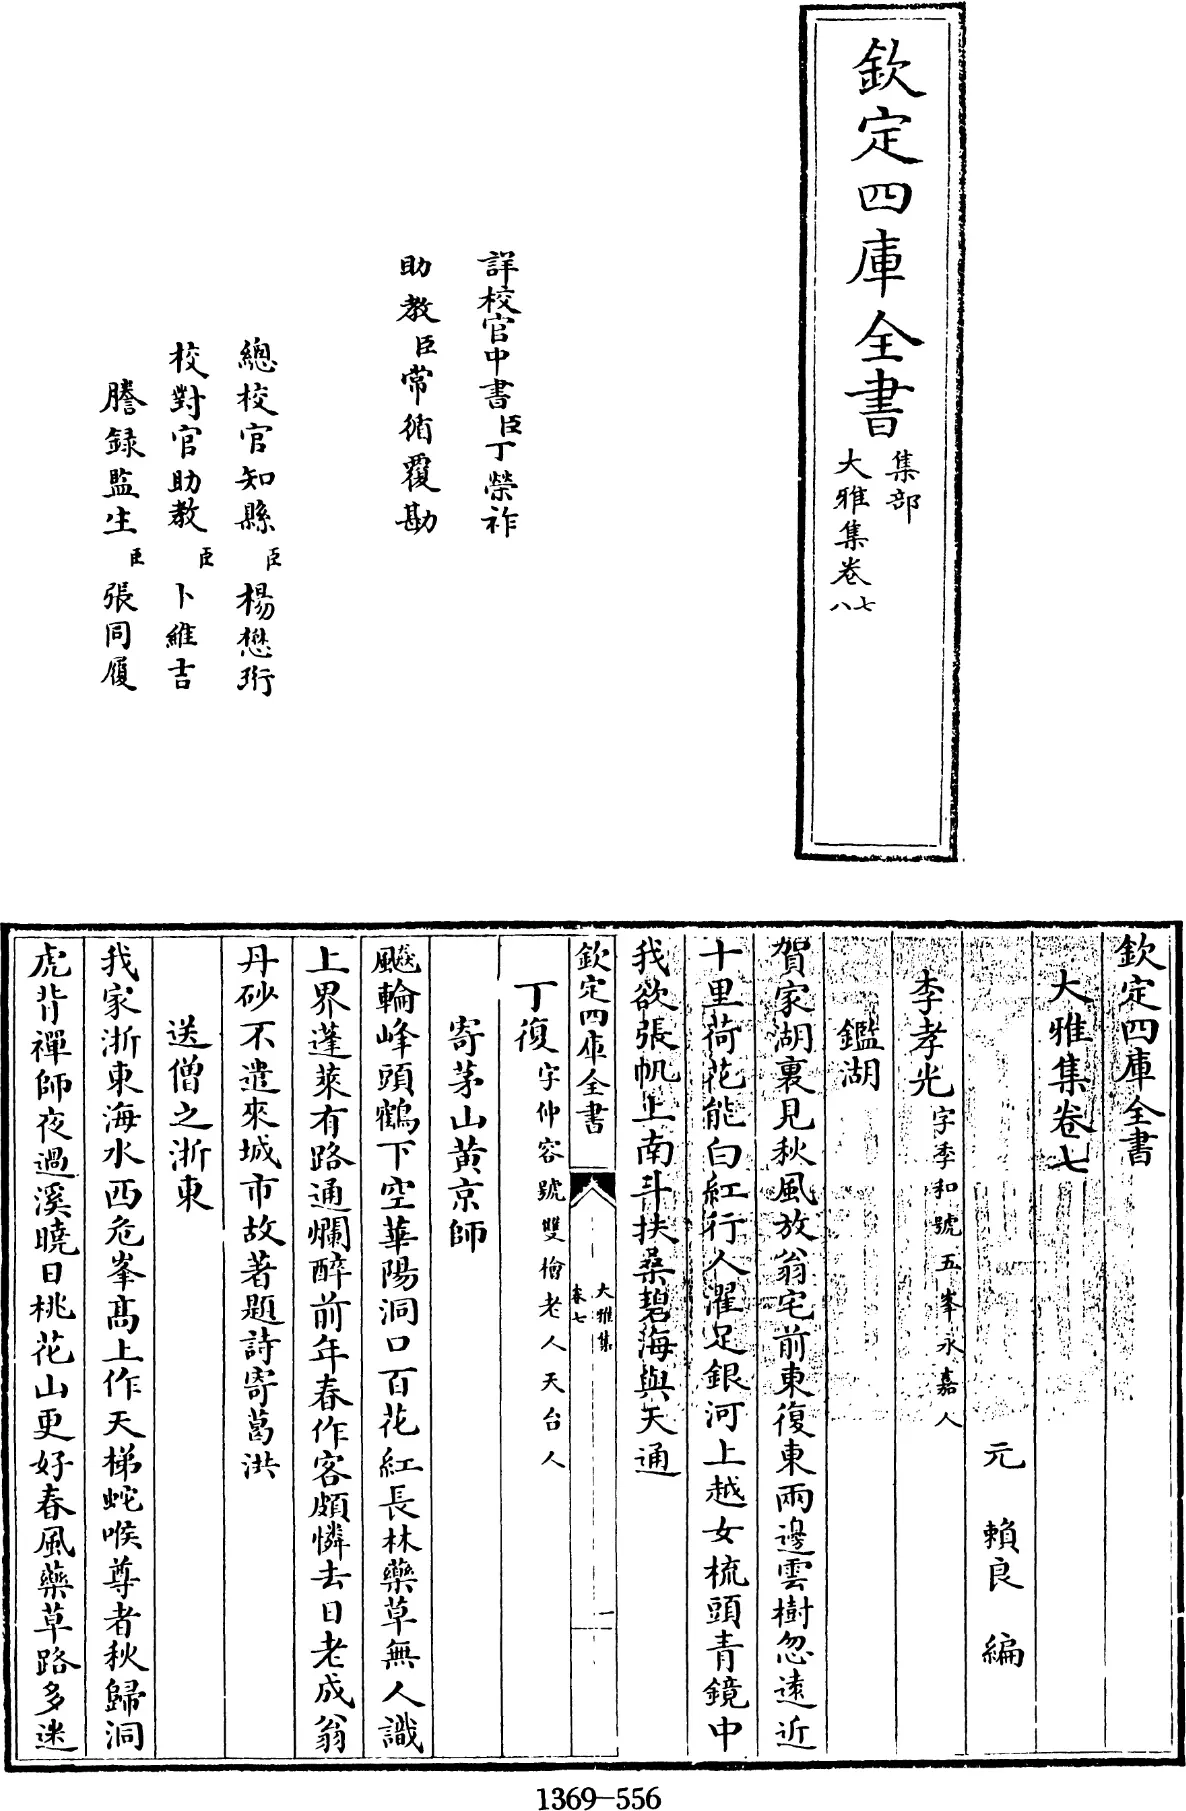 欽定四庫全書
集部
大雅集卷七八
詳校官中書臣丁榮祚
助教臣常循覆勘
總校官知縣臣楊懋珩
校對官助教臣卜維吉
謄録監生臣張同履
欽定四庫全書
大雅集卷七
元 賴良 編
李孝光字季和號五峯永嘉人
鑑湖
賀家湖裏見秋風放翁宅前東復東兩邊雲樹忽遠近
十里荷花能白紅行人濯足銀河上越女梳頭青鏡中
我欲張帆上南斗扶桑碧海與天通
欽定四庫全書
大雅集
卷七
一
丁復字仲容號雙檜老人天台人
寄茅山黄京師
飈輪峰頭鶴下空華陽洞口百花紅長林藥草無人識
上界蓬萊有路通爛醉前年春作客頗憐去日老成翁
丹砂不遣來城市故著題詩寄葛洪
送僧之浙東
我家浙東海水西危峯髙上作天梯蛇喉尊者秋歸洞
虎背禪師夜過溪曉日桃花山更好春風藥草路多迷
1369—556